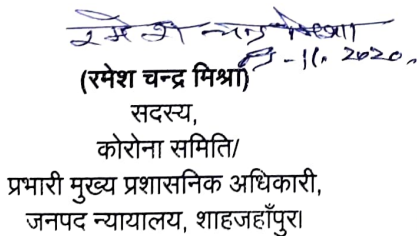 रमेश चन्द्र मिश्रा
-11. 2020.
(रमेश चन्द्र मिश्रा)
सदस्य,
कोरोना समिति/
प्रभारी मुख्य प्रशासनिक अधिकारी,
जनपद न्यायालय, शाहजहाँपुर।